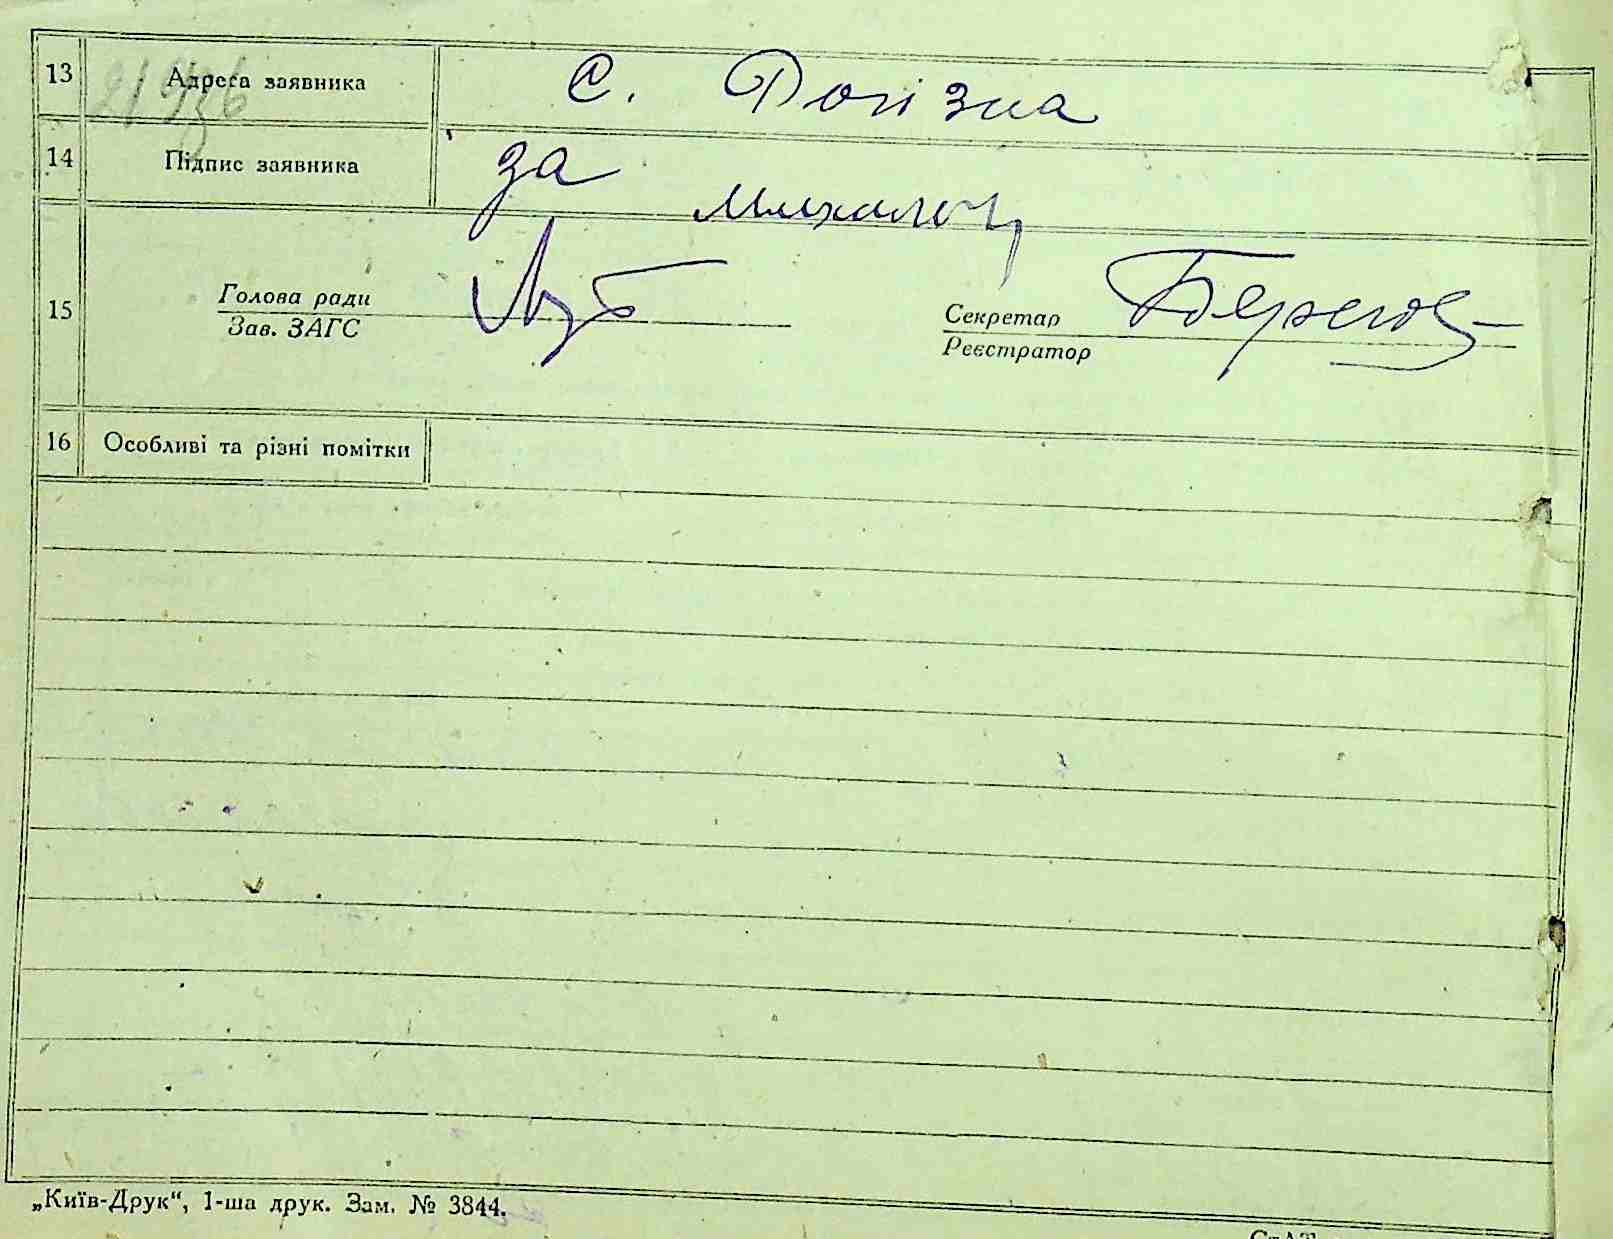 13 Адреса заявника с. Рогізна
14 Підпис заявника за
15 Голова ради
Зав. ЗАГС
Секретар
Реєстратор
16 Особливі та різні помітки
„Київ-Друк“, 1-ша друк. Зам. № 3844.